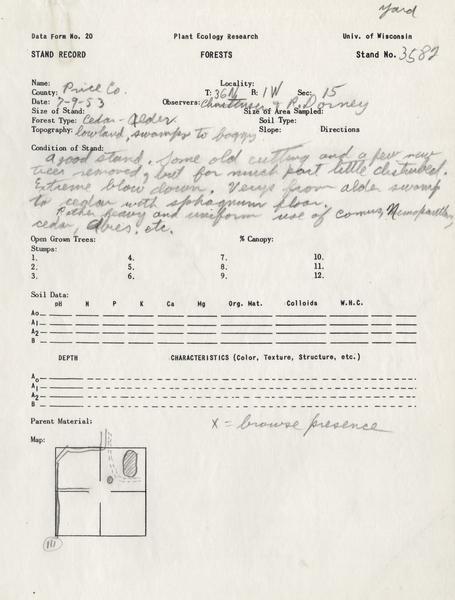 yard
Data Form No. 20 Plant Ecology Research Univ. of Wisconsin
STAND RECORD FORESTS Stand No. 3582
Name: Locality:
County: Price Co. T: 36N R: 1W Sec: 15
Date: 7-9-53 Observers: & R. Dorney
Size of Stand: Size of Area Sampled:
Forest Type: Cedar - Alder Soil Type:
Topography: lowland, swampy to boggy. Slope: Directions
Condition of Stand:
A good stand. Some old cutting and a few new
trees removed, but for much part little disturbed.
Extreme blow down. Verys from alder swamp
to cedar with sphagnum floor.
Rather heavy and uniform use of cornus, Nemopanthus,
cedar, Abies, etc.
Open Grown Trees: % Canopy:
Stumps:
1. 4. 7. 10.
2. 5. 8. 11.
3. 6. 9. 12.
Soil Data:
pH N P K Ca Mg Org. Mat. Colloids W.H.C.
Ao
A1
A2
B
DEPTH CHARACTERISTICS (Color, Texture, Structure, etc.)
Ao
A1
A2
B
Parent Material: X = browse presence
Map: